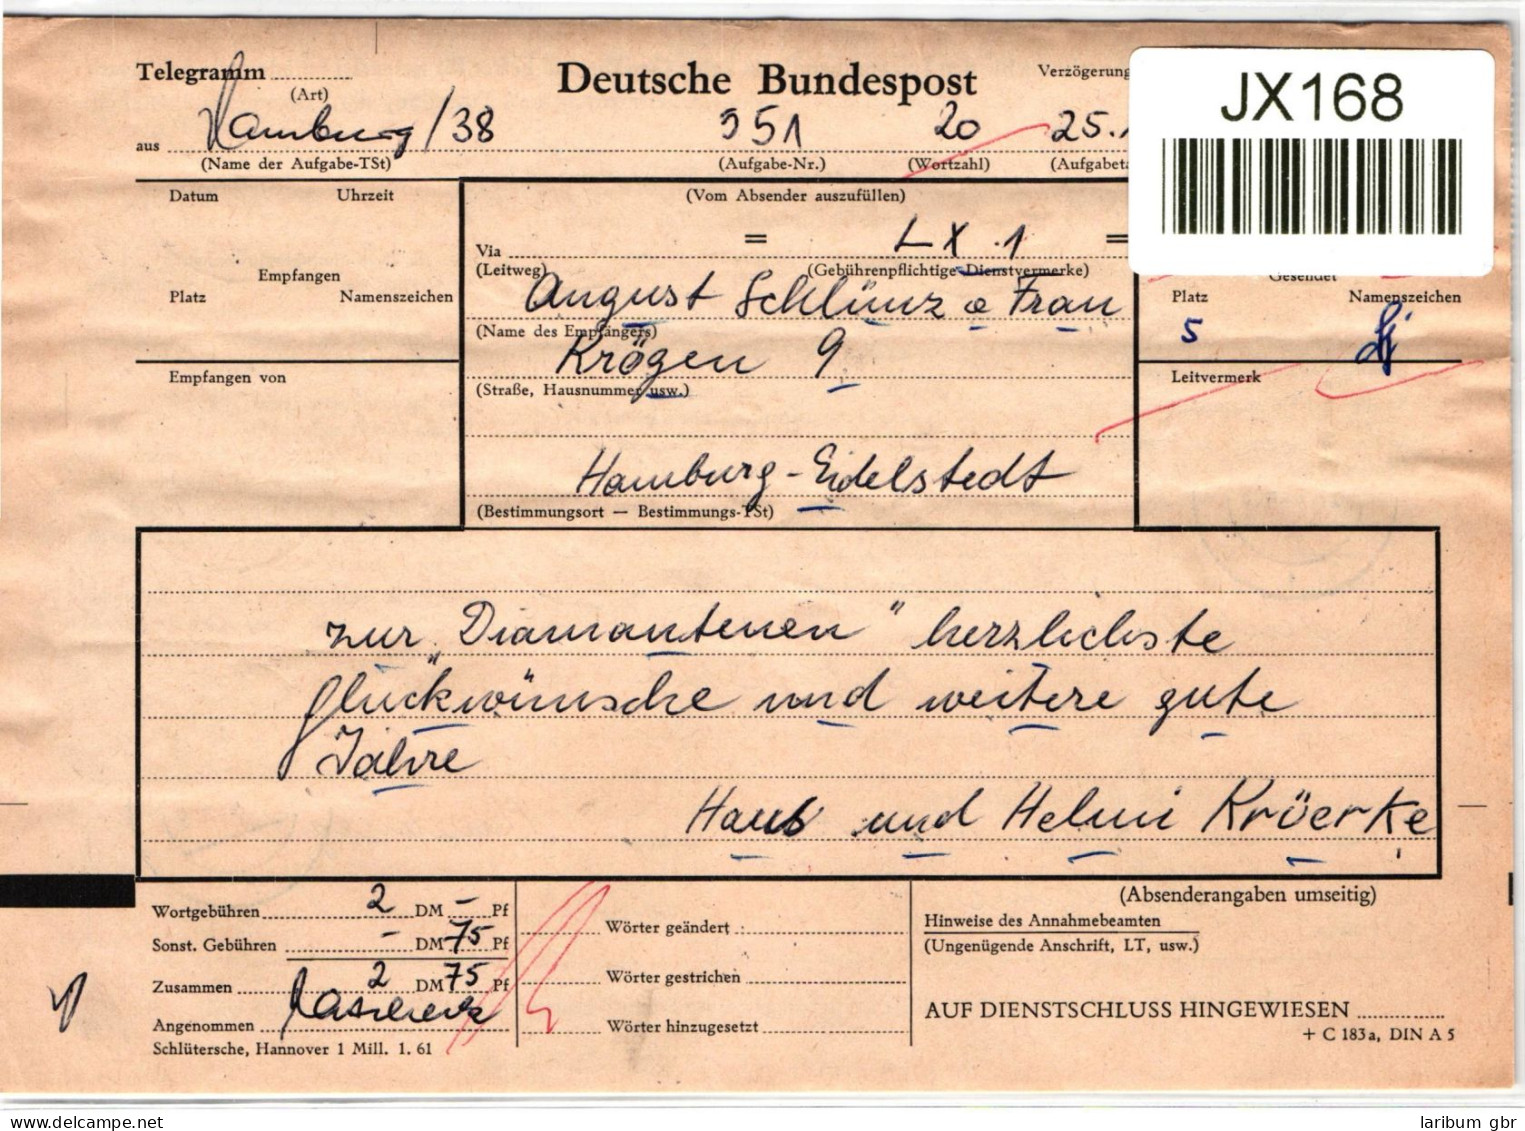 Telegramm
(Art)
Deutsche Bundespost
Verzögerung
JX168
aus Hamburg/38 951 20 25.
(Name der Aufgabe-TSt) (Aufgabe-Nr.) (Wortzahl) (Aufgabeta
Datum Uhrzeit
(Vom Absender auszufüllen)
Via = LX.1 =
(Leitweg) (Gebührenpflichtige Dienstvermerke)
Empfangen
Platz Namenszeichen
Gesendet
Platz Namenszeichen
August Schlünz e Frau
(Name des Empfängers)
5
Krögen 9
(Straße, Hausnummer usw.)
Empfangen von
Leitvermerk
Hamburg-Eidelstedt
(Bestimmungsort — Bestimmungs-TSt)
zur „Diamantenen" herzlichste
Glückwünsche und weitere gute
Jahre
Hans und Helmi Krüerke
(Absenderangaben umseitig)
Wortgebühren 2 DM – Pf
Sonst. Gebühren – DM 75 Pf
Zusammen 2 DM 75 Pf
Angenommen
Schlütersche, Hannover 1 Mill. 1. 61
Wörter geändert :
Wörter gestrichen
Wörter hinzugesetzt
Hinweise des Annahmebeamten
(Ungenügende Anschrift, LT, usw.)
AUF DIENSTSCHLUSS HINGEWIESEN
+ C 183a, DIN A 5
laribum gbr